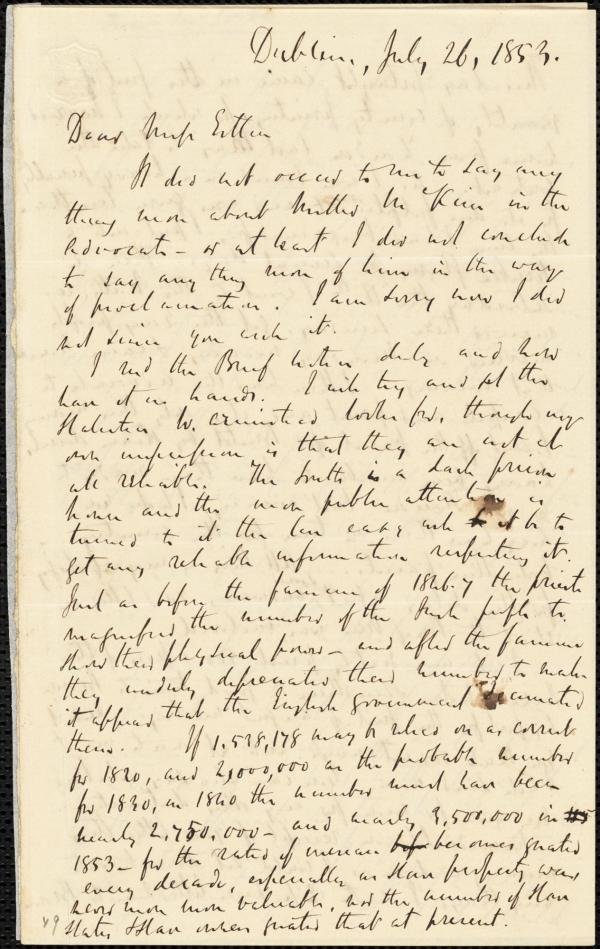 Dublin, July 26, 1853.
Dear Miss Estlin
It did not occur to me to say any
thing more about Miller McKim in the
Advocate - or at least I did not conclude
to say any thing more of him in the way
of proclamation. I am sorry now I did
not since you wish it.
I recd the Brief notice duly and now
have it in hands. I will try and get the
Statistics Wr. Armistead looks for, though my
own impression is that they are not at
all reliable. The South is a dark prison
house and the more public attention is
turned to it the less easy will it be to
get any reliable information respecting it.
Just as before the famine of 1846.7 the priests
magnified the number of the Irish people to
show their physical power - and after the famine
they unduly depreciated their number to make
it appear that the English government decimated
them. If 1,538,178 may be relied on as correct
for 1820, and 2,000,000 as the probable number
for 1830, in 1840 the number must have been
nearly 2,750,000 - and nearly 3,500,000 in
1853 - for the rates of increase becomes greater
every decade, especially as Slave property was
never more valuable, nor the number of Slave
States & Slave owners greater than at present.